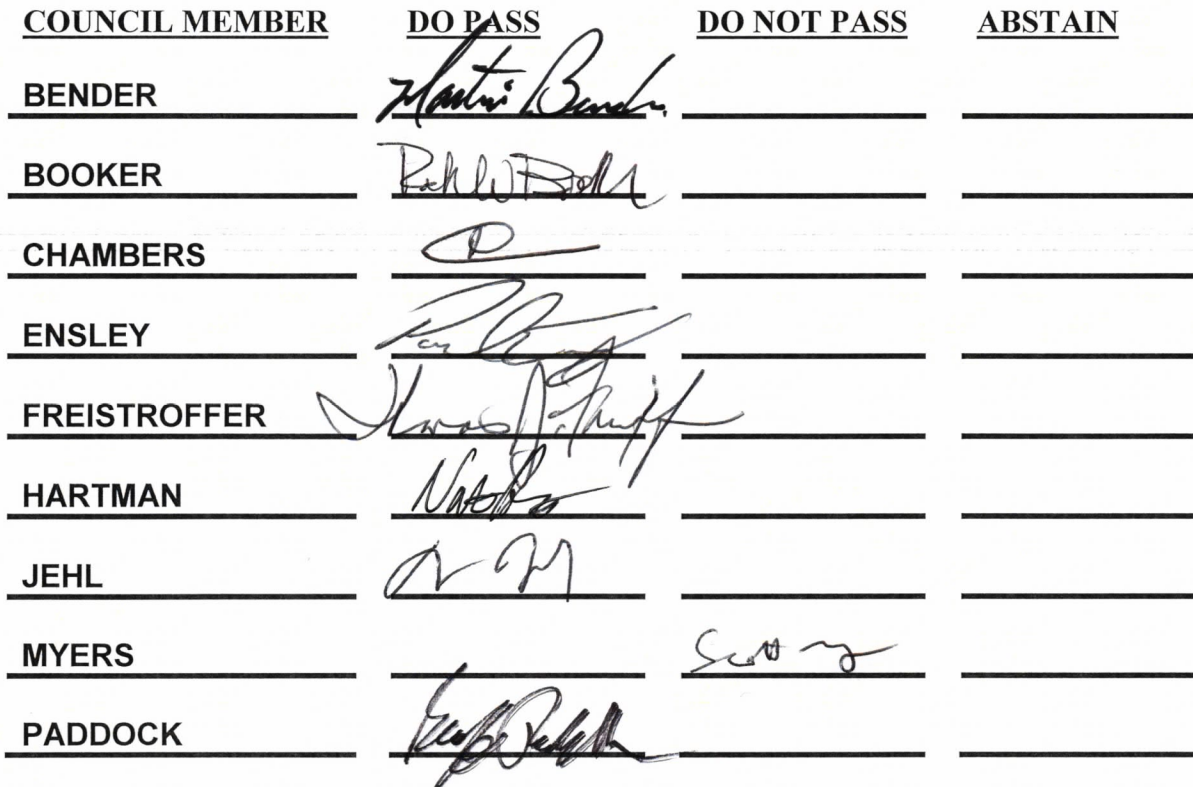 COUNCIL MEMBER DO PASS DO NOT PASS ABSTAIN
BENDER Martin Bender
BOOKER
CHAMBERS
ENSLEY
FREISTROFFER Thomas
HARTMAN
JEHL
MYERS Scott
PADDOCK